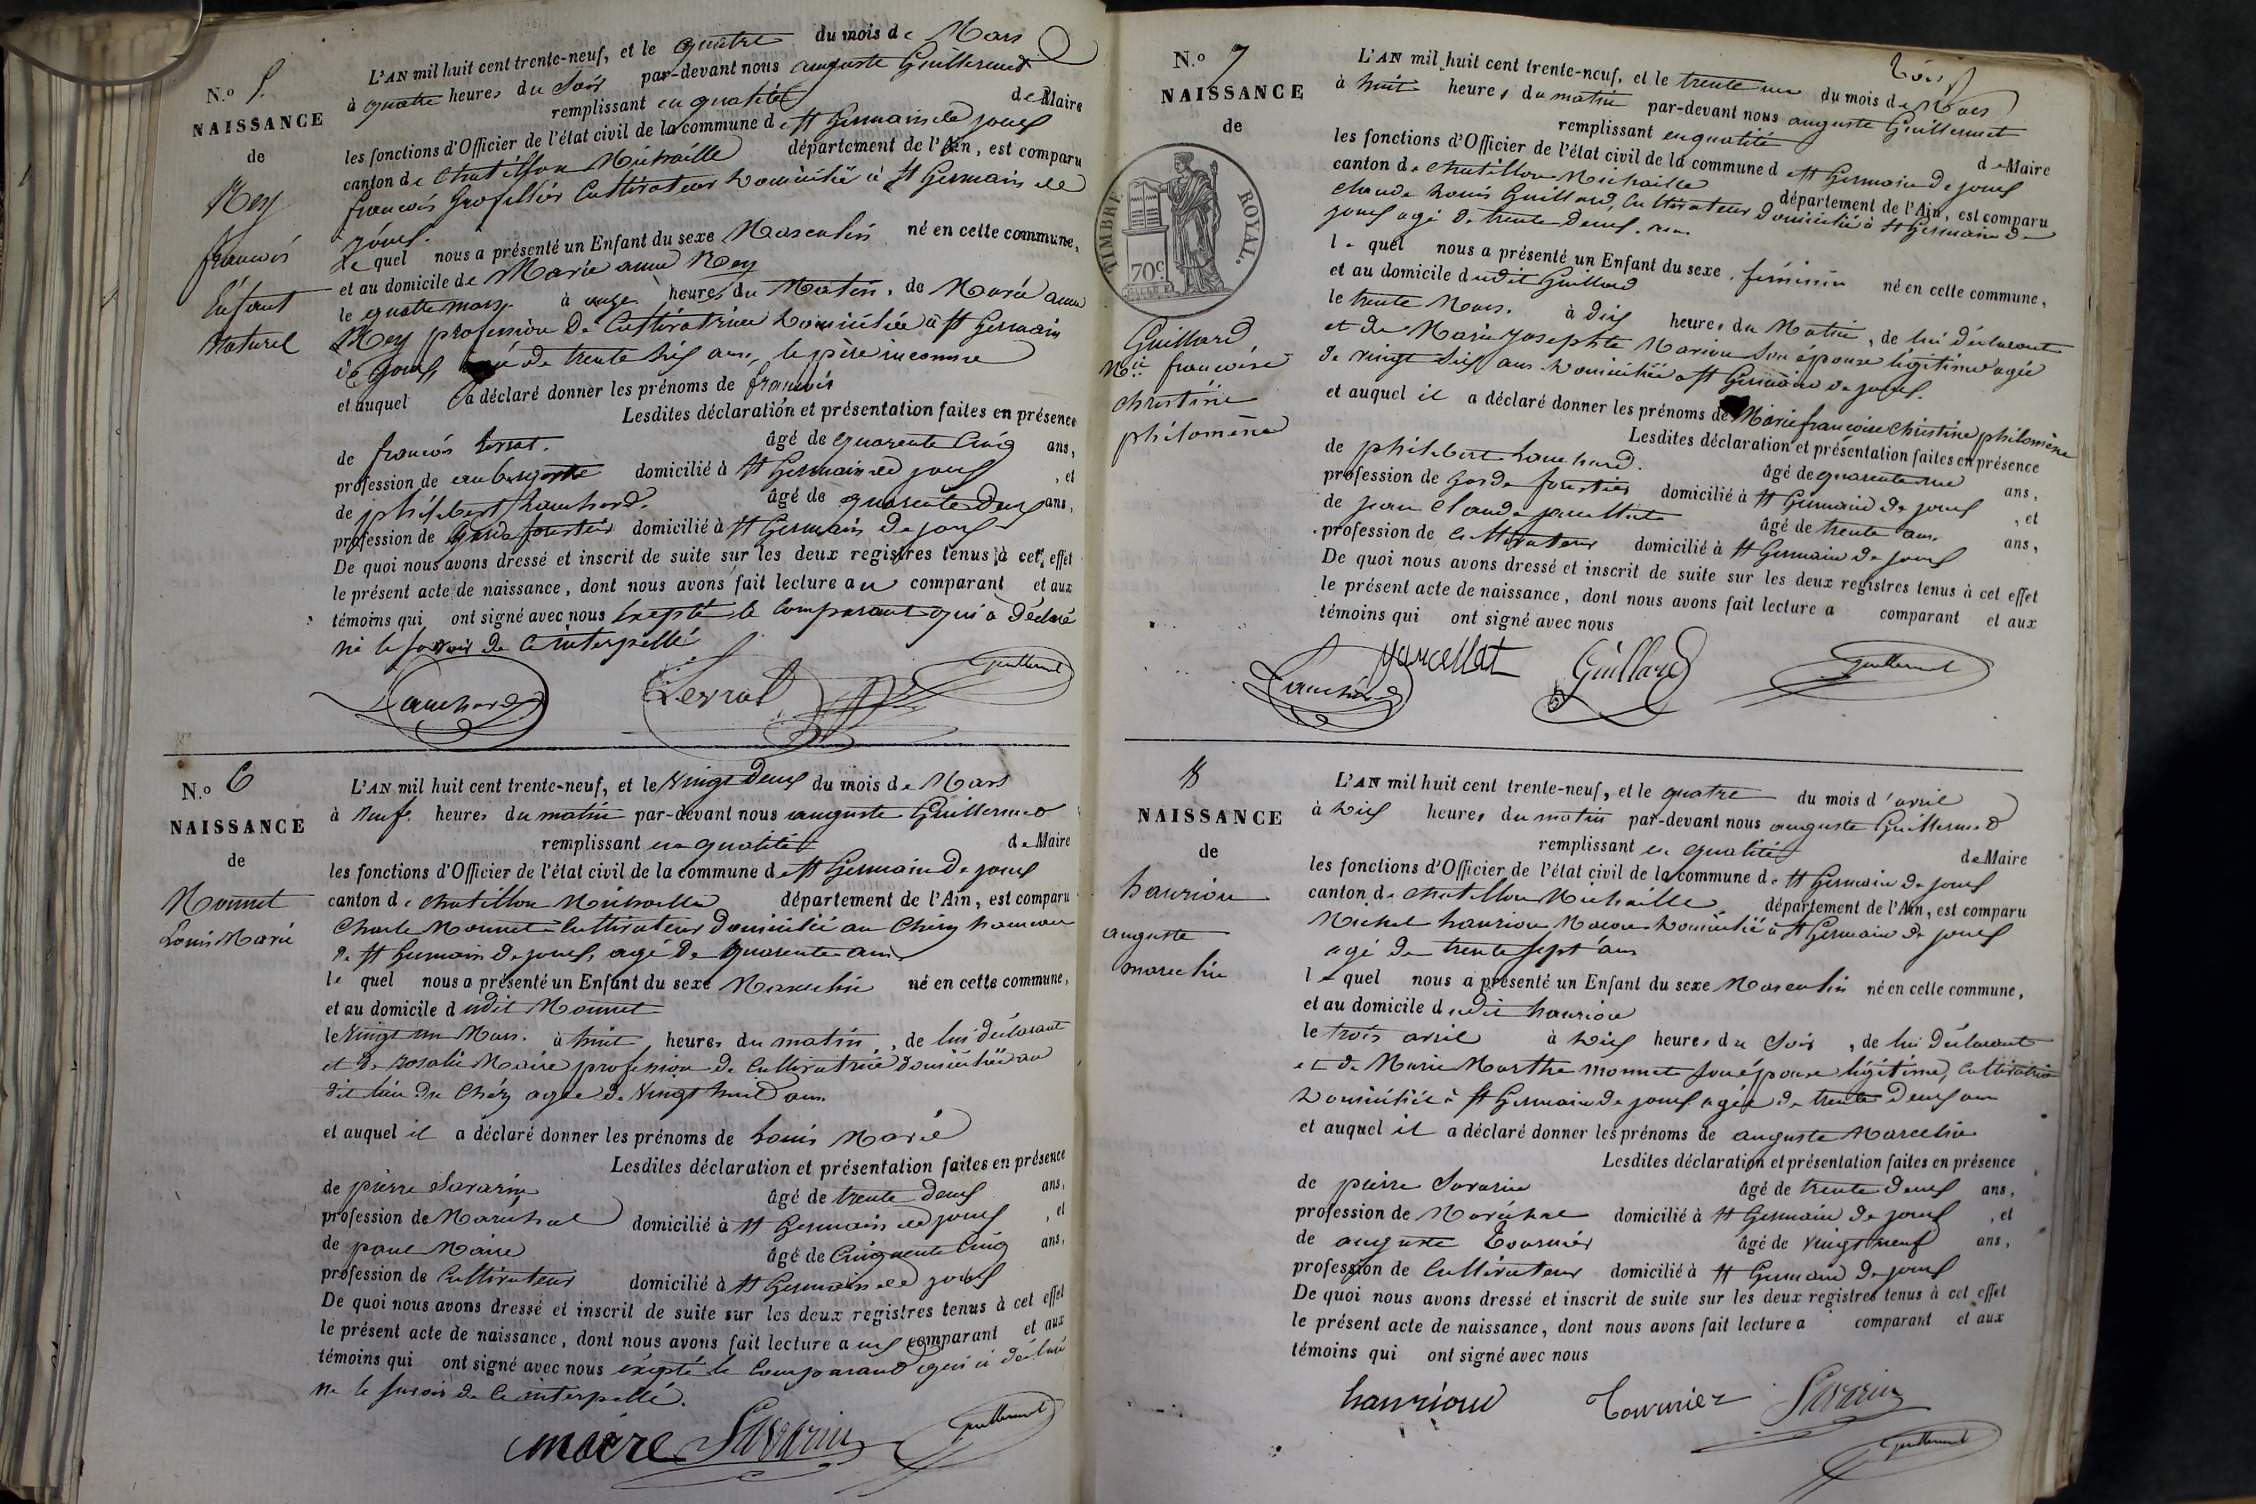 N.o 5.
NAISSANCE
de
Rey
françois
Enfant
Naturel
L'AN mil huit cent trente-neuf, et le quatre du mois de Mars
à quatre heures du Soir par-devant nous auguste Guillermet
remplissant en qualité de Maire
les fonctions d'Officier de l'état civil de la commune de St Germain de joux
canton de Chatillon Michaille département de l'Ain, est comparu
françois Cultivateur Domicilié à St Germain de
joux.
Le quel nous a présenté un Enfant du sexe Masculin né en cette commune,
et au domicile de Marie anne Rey
le quatre mars à onze heures du Matin, de Marie anne
Rey profession de Cultivatrice Domiciliée à St Germain
de joux agée de trente six ans, le père inconnu
et auquel a déclaré donner les prénoms de françois
Lesdites déclaration et présentation faites en présence
de françois Levrat. âgé de quarente Cinq ans,
profession de aubergiste domicilié à St Germain de joux, et
de philibert Lanchard. âgé de quarente Deux ans,
profession de Garde forestier domicilié à St Germain De joux
De quoi nous avons dressé et inscrit de suite sur les deux registres tenus à cet effet
le présent acte de naissance, dont nous avons fait lecture au comparant et aux
témoins qui ont signé avec nous Excepté le Comparant qui a Déclaré
ne le savoir de Ce interpellé
Lanchard Levrat Guillermet
N.o 6
NAISSANCE
de
Monnet
Louis Marie
L'AN mil huit cent trente-neuf, et le Vingt Deux du mois de Mars
à Neuf heures du matin par-devant nous auguste Guillermet
remplissant en qualité de Maire
les fonctions d'Officier de l'état civil de la commune de St Germain De joux
canton de Chatillon Michaille département de l'Ain, est comparu
Charle Monnet Cultivateur Domicilié au Chéry hameau
De St Germain De joux, agé De Quarente ans
le quel nous a présenté un Enfant du sexe Masculin né en cette commune,
et au domicile dudit Monnet
le Vingt un Mars. à huit heures du matin, de lui déclarant
et De rosalie Maire profession de Cultivatrice domiciliée au
dit lieu Du Chéry agée de Vingt huit ans
et auquel il a déclaré donner les prénoms de Louis Marie
Lesdites déclaration et présentation faites en présence
de pierre Savarin âgé de trente deux ans,
profession de Maréchal domicilié à St Germain de joux, et
de paul Maire âgé de Cinquente Cinq ans,
profession de Cultivateur domicilié à St Germain de joux
De quoi nous avons dressé et inscrit de suite sur les deux registres tenus à cet effet
le présent acte de naissance, dont nous avons fait lecture aux comparant et aux
témoins qui ont signé avec nous éxcepté le Comparant qui a déclaré
ne le savoir de Ce interpellé.
maire Savarin Guillermet
N.o 7
NAISSANCE
de
TIMBRE ROYAL.
70c
Guillard,
Mie françoise
christine
philomène
L'AN mil huit cent trente-neuf, et le trente un du mois de Mars
à huit heures du matin par-devant nous auguste Guillermet
remplissant en qualité de Maire
les fonctions d'Officier de l'état civil de la commune de St Germain De joux
canton de Chatillon Michaille département de l'Ain, est comparu
Claude Louis Guillard, Cultivateur Domicilié à St Germain De
joux agé De trente Deux. ans
le quel nous a présenté un Enfant du sexe féminin né en cette commune,
et au domicile dudit Guillard
le trente Mars. à dix heures du Matin, de lui déclarant
et de Marie josephte Marion Son épouse légitime agée
de vingt Six ans Domiciliée à St Germain De joux.
et auquel il a déclaré donner les prénoms de Marie françoise Christine philomène
Lesdites déclaration et présentation faites en présence
de philibert Lanchard. âgé de quarente ans,
profession de Garde forestier domicilié à St Germain De joux, et
de jean Claude âgé de trente ans,
profession de Cultivateur domicilié à St Germain De joux
De quoi nous avons dressé et inscrit de suite sur les deux registres tenus à cet effet
le présent acte de naissance, dont nous avons fait lecture a comparant et aux
témoins qui ont signé avec nous
Lanchard Marcellat Guillard Guillermet
8
NAISSANCE
de
hanriou
auguste
marcelin
L'AN mil huit cent trente-neuf, et le quatre du mois d'avril
à Dix heures du matin par-devant nous auguste Guillermet
remplissant en qualité de Maire
les fonctions d'Officier de l'état civil de la commune de St Germain De joux
canton de Chatillon Michaille département de l'Ain, est comparu
Michel hanriou Macon Domicilié à St Germain De joux
agé De trente Sept ans
le quel nous a présenté un Enfant du sexe Masculin né en cette commune,
et au domicile dudit hanriou
le trois avril à Dix heures du Soir, de lui déclarant
et De Marie Marthe monnet son épouse légitime, Cultivatrice
Domiciliée à St Germain De joux agée De trente Deux ans
et auquel il a déclaré donner les prénoms de auguste Marcelin
Lesdites déclaration et présentation faites en présence
de pierre Savarin âgé de trente Deux ans,
profession de Maréchal domicilié à St Germain De joux, et
de auguste Tournier âgé de vingt neuf ans,
profession de Cultivateur domicilié à St Germain De joux
De quoi nous avons dressé et inscrit de suite sur les deux registres tenus à cet effet
le présent acte de naissance, dont nous avons fait lecture a comparant et aux
témoins qui ont signé avec nous
hanriou Tournier Savarin
Guillermet